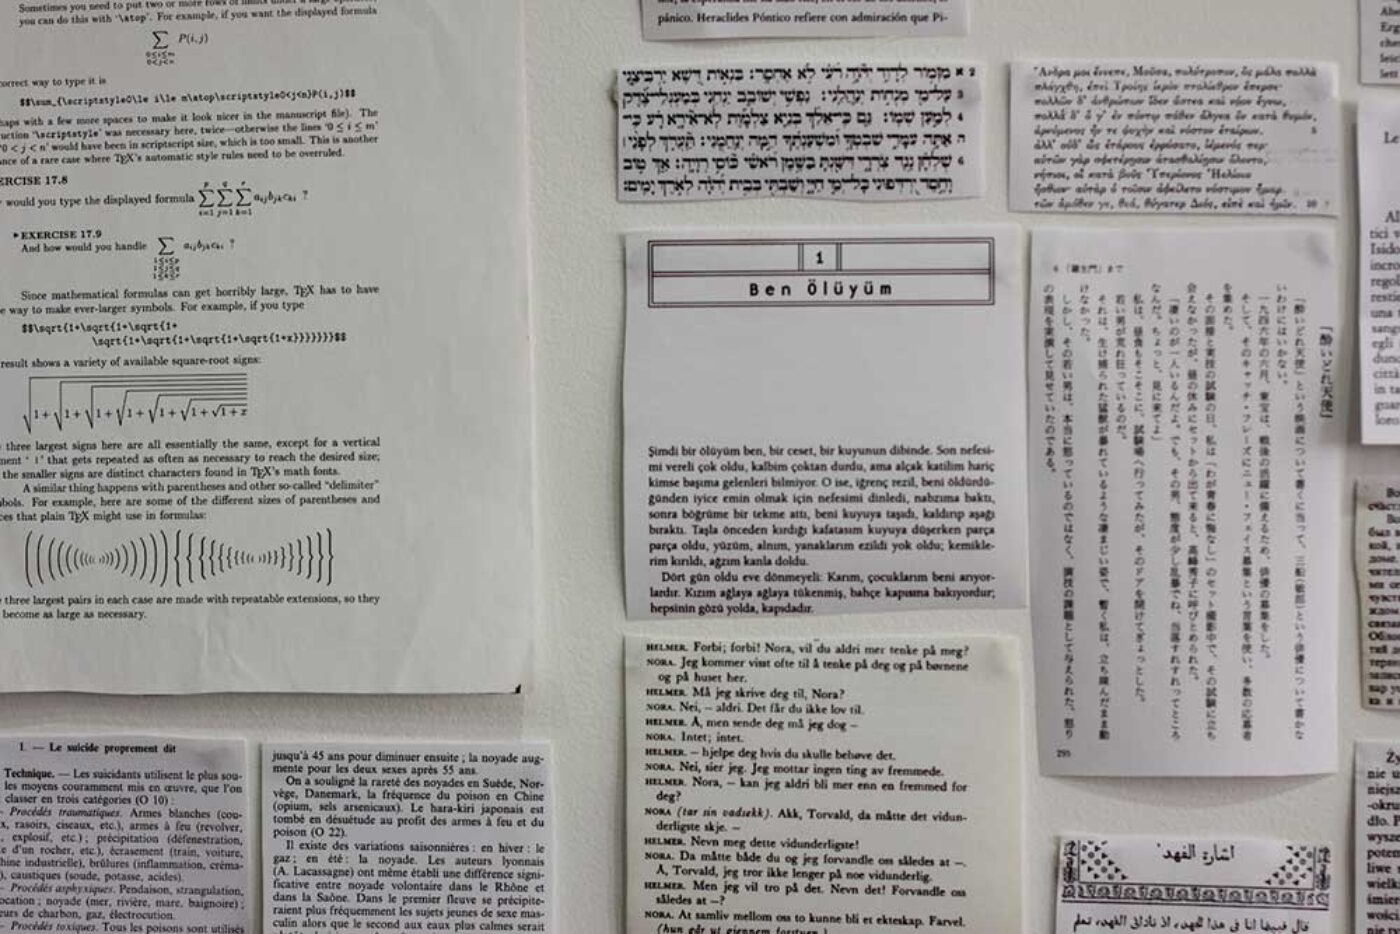 Sometimes you need to put two or more rows of
you can do this with ‘\atop’. For example, if you want the displayed formula
∑ P(i,j)
0≤i≤m
0<j<n
correct way to type it is
$$\sum_{\scriptstyle0\le i\le m\atop\scriptstyle0<j<n}P(i,j)$$
haps with a few more spaces to make it look nicer in the manuscript file). The
uction ‘\scriptstyle’ was necessary here, twice—otherwise the lines ‘0 ≤ i ≤ m’
‘0 < j < n’ would have been in scriptscript size, which is too small. This is another
nce of a rare case where TEX’s automatic style rules need to be overruled.
ERCISE 17.8
would you type the displayed formula ∑∑∑ aijbjkcki ?
▸EXERCISE 17.9
And how would you handle ∑ aijbjkcki ?
1≤i≤p
1≤j≤q
1≤k≤r
Since mathematical formulas can get horribly large, TEX has to have
e way to make ever-larger symbols. For example, if you type
$$\sqrt{1+\sqrt{1+\sqrt{1+
\sqrt{1+\sqrt{1+\sqrt{1+\sqrt{1+x}}}}}}}$$
result shows a variety of available square-root signs:
√1+√1+√1+√1+√1+√1+√1+x
three largest signs here are all essentially the same, except for a vertical
ment ‘ | ’ that gets repeated as often as necessary to reach the desired size;
the smaller signs are distinct characters found in TEX’s math fonts.
A similar thing happens with parentheses and other so-called “delimiter”
bols. For example, here are some of the different sizes of parentheses and
ces that plain TEX might use in formulas:
three largest pairs in each case are made with repeatable extensions, so they
become as large as necessary.
I. — Le suicide proprement dit
Technique. — Les suicidants utilisent le plus sou-
les moyens couramment mis en œuvre, que l'on
classer en trois catégories (O 10) :
- Procédés traumatiques. Armes blanches (cou-
x, rasoirs, ciseaux, etc.), armes à feu (revolver,
, explosif, etc.) ; précipitation (défenestration,
e d'un rocher, etc.), écrasement (train, voiture,
hine industrielle), brûlures (inflammation, créma-
), caustiques (soude, potasse, acides).
- Procédés asphyxiques. Pendaison, strangulation,
ocation ; noyade (mer, rivière, mare, baignoire) ;
eurs de charbon, gaz, électrocution.
- Procédés toxiques. Tous les poisons sont utilisés
jusqu'à 45 ans pour diminuer ensuite ; la noyade aug-
mente pour les deux sexes après 55 ans.
On a souligné la rareté des noyades en Suède, Nor-
vège, Danemark, la fréquence du poison en Chine
(opium, sels arsenicaux). Le hara-kiri japonais est
tombé en désuétude au profit des armes à feu et du
poison (O 22).
Il existe des variations saisonnières : en hiver : le
gaz ; en été : la noyade. Les auteurs lyonnais
(A. Lacassagne) ont même établi une différence signi-
ficative entre noyade volontaire dans le Rhône et
dans la Saône. Dans le premier fleuve se précipite-
raient plus fréquemment les sujets jeunes de sexe mas-
culin alors que le second aux eaux plus calmes serait
pánico. Heraclides Póntico refiere con admiración que Pi-
מזמור לדוד יהוה רעי לא אחסר: בנאות דשא ירביצני
על־מי מנחות ינהלני: נפשי ישובב ינחני במעגלי־צדק
למען שמו: גם כי־אלך בגיא צלמות לא־אירא רע כי־
אתה עמדי שבטך ומשענתך המה ינחמני: תערך לפני
שלחן נגד צררי דשנת בשמן ראשי כוסי רויה: אך טוב
וחסד ירדפוני כל־ימי חיי ושבתי בבית יהוה לארך ימים:
Ἄνδρα μοι ἔννεπε, Μοῦσα, πολύτροπον, ὃς μάλα πολλὰ
πλάγχθη, ἐπεὶ Τροίης ἱερὸν πτολίεθρον ἔπερσε·
πολλῶν δ' ἀνθρώπων ἴδεν ἄστεα καὶ νόον ἔγνω,
πολλὰ δ' ὅ γ' ἐν πόντῳ πάθεν ἄλγεα ὃν κατὰ θυμόν,
ἀρνύμενος ἥν τε ψυχὴν καὶ νόστον ἑταίρων. 5
ἀλλ' οὐδ' ὧς ἑτάρους ἐρρύσατο, ἱέμενός περ·
αὐτῶν γὰρ σφετέρῃσιν ἀτασθαλίῃσιν ὄλοντο,
νήπιοι, οἳ κατὰ βοῦς Ὑπερίονος Ἠελίοιο
ἤσθιον· αὐτὰρ ὁ τοῖσιν ἀφείλετο νόστιμον ἦμαρ.
τῶν ἁμόθεν γε, θεά, θύγατερ Διός, εἰπὲ καὶ ἡμῖν. 10
1
Ben Ölüyüm
Şimdi bir ölüyüm ben, bir ceset, bir kuyunun dibinde. Son nefesi-
mi vereli çok oldu, kalbim çoktan durdu, ama alçak katilim hariç
kimse başıma gelenleri bilmiyor. O ise, iğrenç rezil, beni öldürdü-
ğünden iyice emin olmak için nefesimi dinledi, nabzıma baktı,
sonra böğrüme bir tekme attı, beni kuyuya taşıdı, kaldırıp aşağı
bıraktı. Taşla önceden kırdığı kafatasım kuyuya düşerken parça
parça oldu, yüzüm, alnım, yanaklarım ezildi yok oldu; kemikle-
rim kırıldı, ağzım kanla doldu.
Dört gün oldu eve dönmeyeli: Karım, çocuklarım beni arıyor-
lardır. Kızım ağlaya ağlaya tükenmiş, bahçe kapısına bakıyordur;
hepsinin gözü yolda, kapıdadır.
HELMER. Forbi; forbi! Nora, vil du aldri mer tenke på meg?
NORA. Jeg kommer visst ofte til å tenke på deg og på børnene
og på huset her.
HELMER. Må jeg skrive deg til, Nora?
NORA. Nei, – aldri. Det får du ikke lov til.
HELMER. Å, men sende deg må jeg dog –
NORA. Intet; intet.
HELMER. – hjelpe deg hvis du skulle behøve det.
NORA. Nei, sier jeg. Jeg mottar ingen ting av fremmede.
HELMER. Nora, – kan jeg aldri bli mer enn en fremmed for
deg?
NORA (tar sin vadsekk). Akk, Torvald, da måtte det vidun-
derligste skje. –
HELMER. Nevn meg dette vidunderligste!
NORA. Da måtte både du og jeg forvandle oss således at –.
Å, Torvald, jeg tror ikke lenger på noe vidunderlig.
HELMER. Men jeg vil tro på det. Nevn det! Forvandle oss
således at –?
NORA. At samliv mellom oss to kunne bli et ekteskap. Farvel.
(hun går ut gjennem forstuen.)
6 「羅生門」まで
「酔いどれ天使」
「酔いどれ天使」という映画について書くに当って、三船(敏郎)という俳優について書かな
いわけにはいかない。
一九四六年の六月、東宝は、戦後の活躍に備えるため、俳優の募集をした。
そして、そのキャッチ・フレーズにニュー・フェイス募集という言葉を使い、多数の応募者
を集めた。
その面接と実技の試験の日、私は「わが青春に悔なし」のセット撮影中で、その試験に立ち
会えなかったが、昼の休みにセットから出て来ると、高峰秀子に呼びとめられた。
「凄いのが一人いるんだよ。でも、その男、態度が少し乱暴でね、当落すれすれってところ
なんだ。ちょっと、見に来てよ」
私は、昼食もそこそこに、試験場へ行ってみたが、そのドアを開けてぎょっとした。
若い男が荒れ狂っているのだ。
それは、生け捕られた猛獣が暴れているような凄まじい姿で、暫く私は、立ち竦んだまま動
けなかった。
しかし、その若い男は、本当に怒っているのではなく、演技の課題として与えられた、怒り
の表現を実演して見せていたのである。
295
اشارة الفهد
قال فبينما انا في هذا الفهد، اذ ناداني الفهد، تعلم